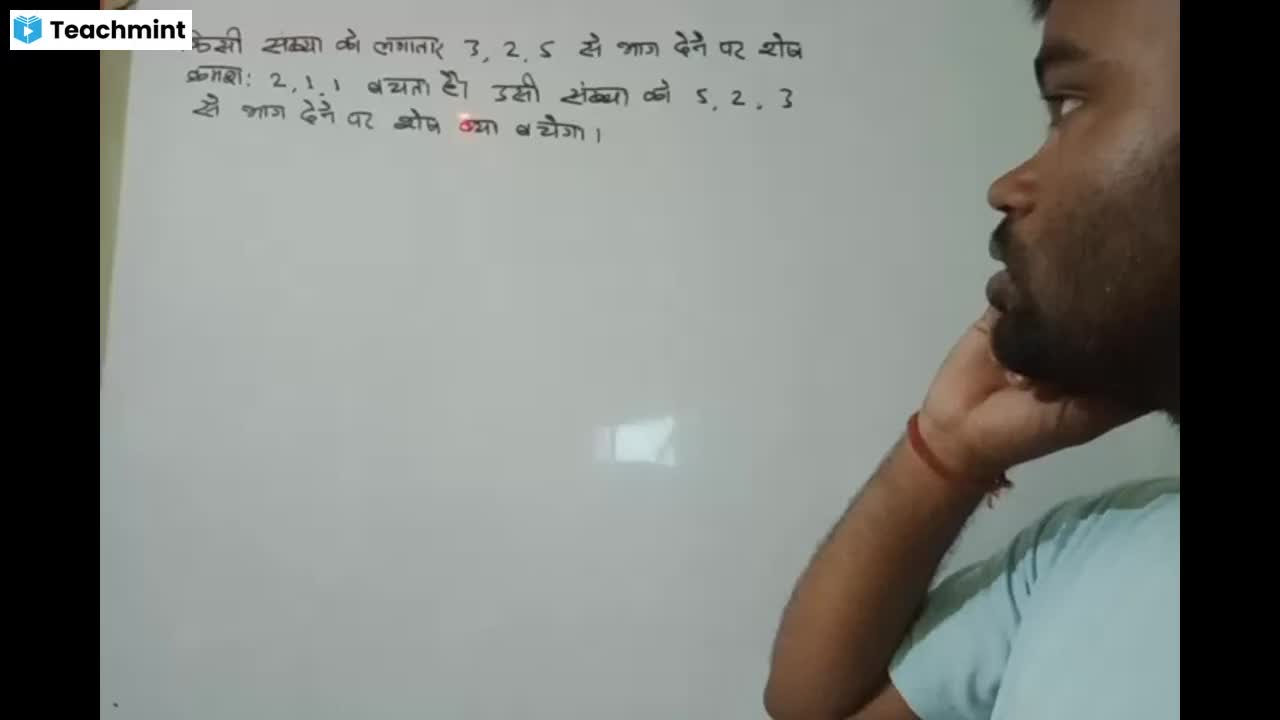 Teachmint
किसी संख्या को लगातार 3, 2, 5 से भाग देने पर शेष
क्रमशः 2, 1, 1 बचता है। उसी संख्या को 5, 2, 3
से भाग देने पर शेष क्या बचेगा।